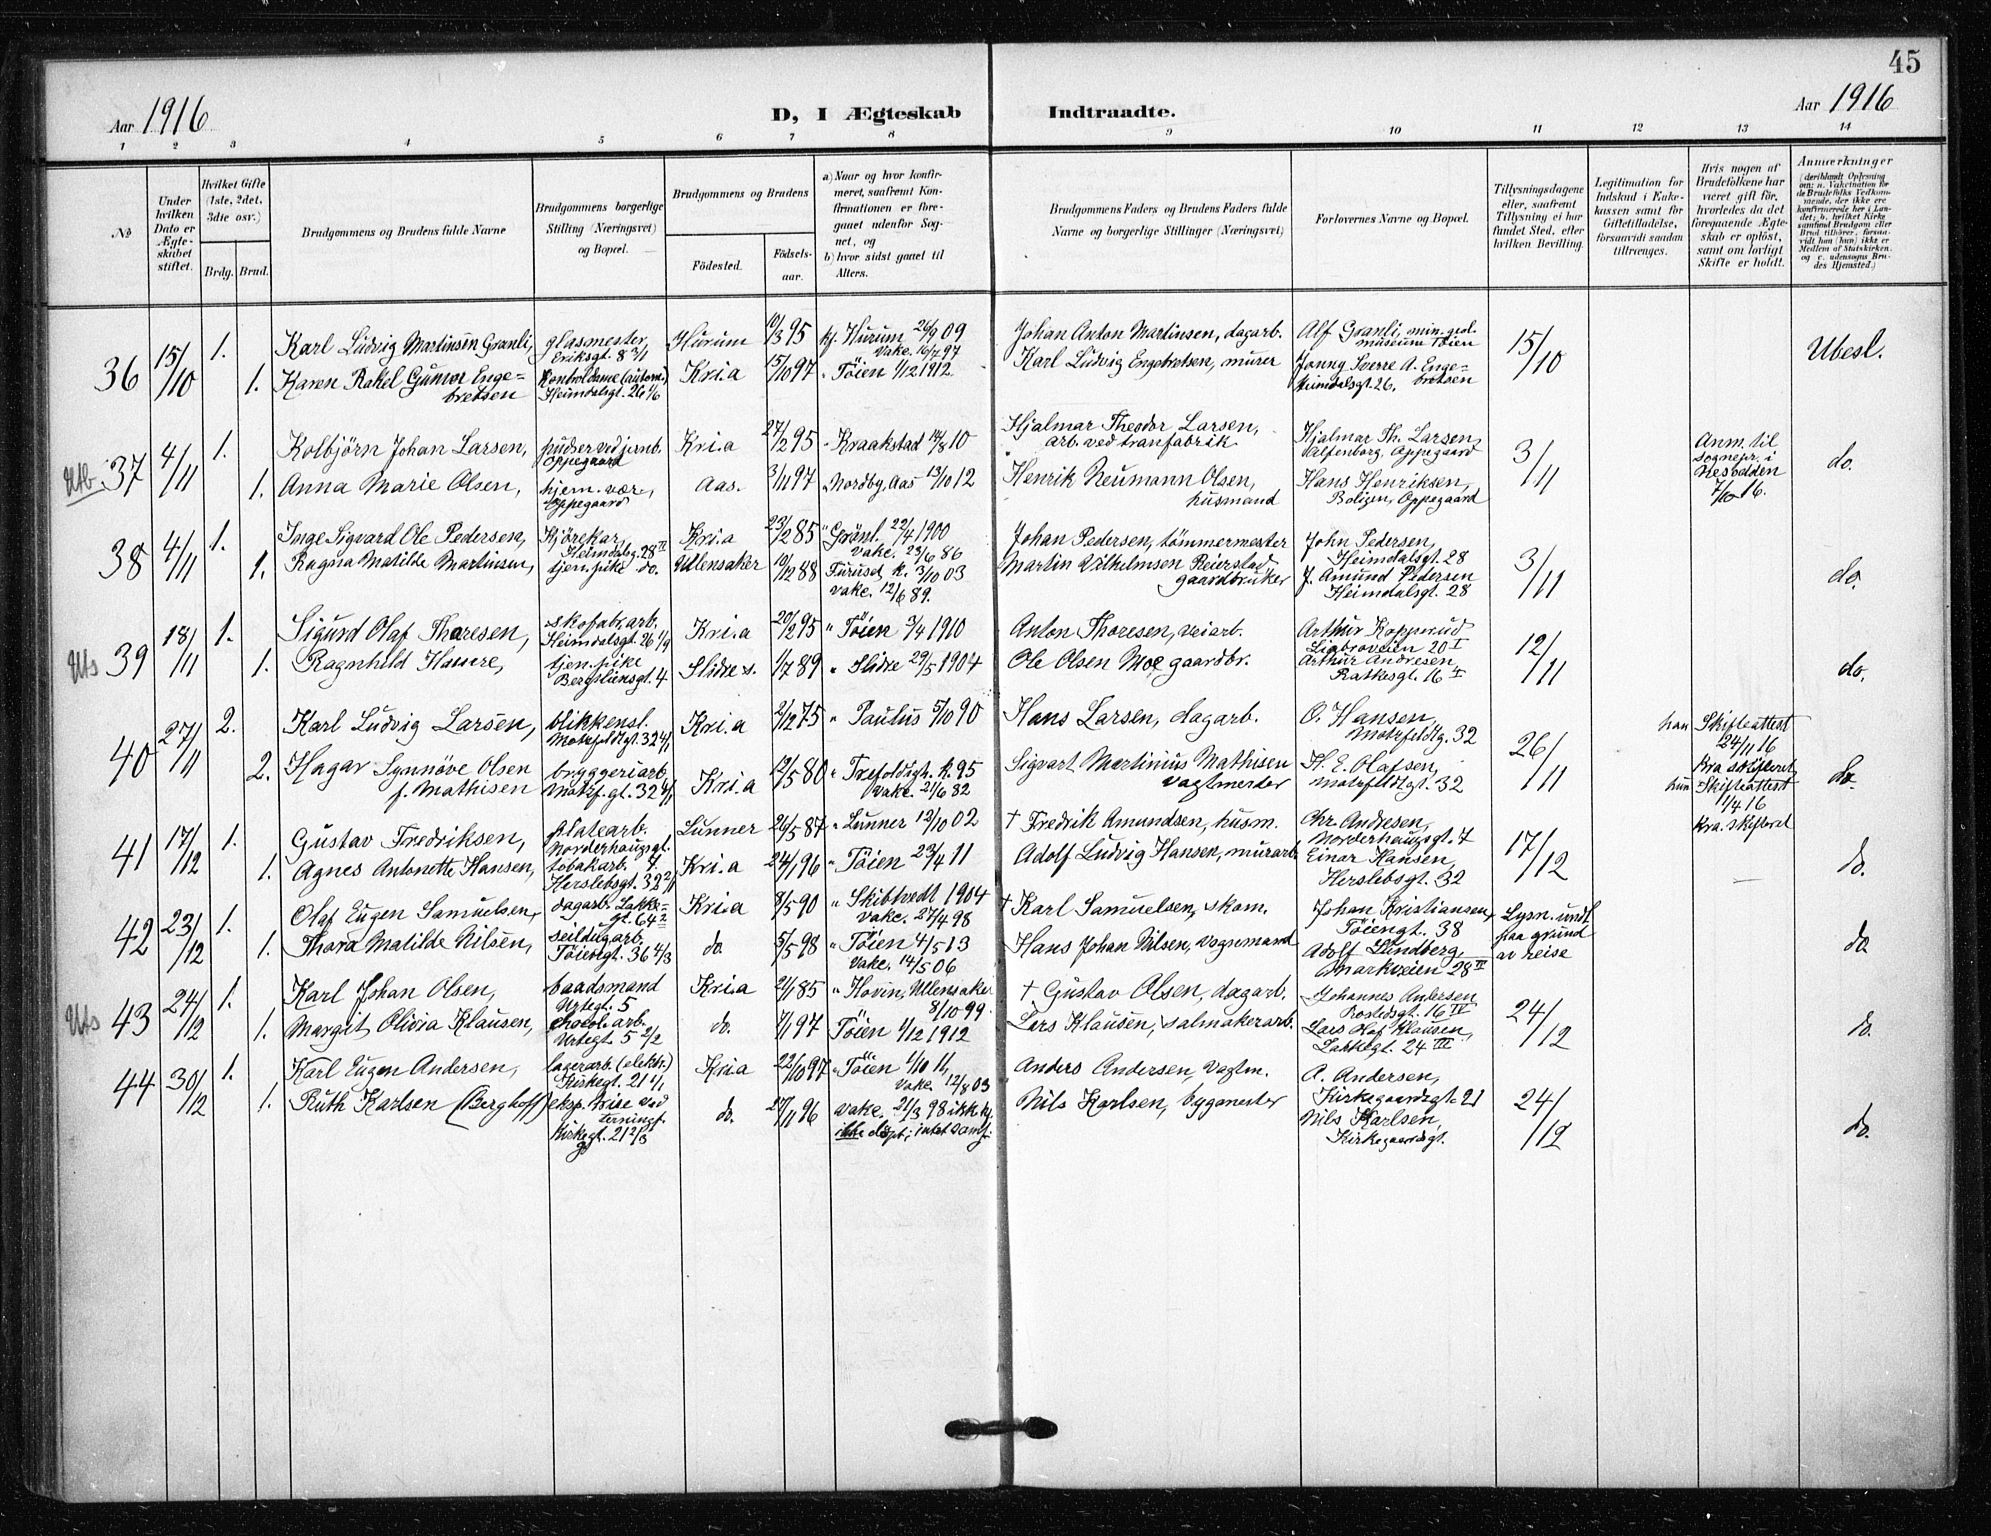 45
Aar 1916
D, I Ægteskab Indtraadte.
Aar 1916
1 2 3 4 5 6 7 8 9 10 11 12 13 14
No
Under hvilken Dato er Ægteskabet stiftet.
Hvilket Gifte (1ste, 2det, 3die osv.)
Brdg. Brud.
Brudgommens og Brudens fulde Navne
Brudgommens borgerlige Stilling (Næringsvei) og Bopæl.
Brudgommens og Brudens
Födested.
Födselsaar.
a) Naar og hvor konfirmeret, saafremt Konfirmationen er foregaaet udenfor Sognet, og
b) hvor sidst gaaet til Alters.
Brudgommens Faders og Brudens Faders fulde Navne og borgerlige Stillinger (Næringsvei)
Forlovernes Navne og Bopæl.
Tillysningsdagene eller, saafremt Tillysning ei har fundet Sted, efter hvilken Bevilling.
Legitimation for Indskud i Enkekassen samt for Giftetilladelse, forsaavidt saadan tiltrænges.
Hvis nogen af Brudefolkene har været gift før, hvorledes da det foregaaende Ægteskab er opløst, samt om lovligt Skifte er holdt.
Anmærkninger (deriblandt Oplysning om: a. Vakcination for de Brudefolks Vedkommende, der ikke ere konfirmerede her i Landet; b. hvilket Kirkesamfund Brudgom eller Brud tilhører, forsaavidt han (hun) ikke er Medlem af Statskirken, og c. udensogns Brudes Hjemsted.)
36 15/10 1. Karl Ludvig Martinsen Granli, glasmester, Eriksgt. 8 3/1 Hurum 10/3 95 kf. Hurum 26/9 09 Vakc. 16/7 97 Johan Anton Martinsen, dagarb. Alf Granli, min.-geol. museum Töien 15/10 Ubesl.
1. Karen Rakel Gunvor Engebretsen Kontroldame (autom.) Heimdalsgt. 26 4/6 Kr.i.a 15/10 97 " Töien 1/12 1912 Karl Ludvig Engebretsen, murer Jonny Sverre A. Engebretsen Heimdalsgt. 26,
Utb. 37 4/11 1. Kolbjörn Johan Larsen, pudser ved jernb. Oppegaard Kr.i.a 27/2 95 " Kraakstad 14/8 10 Hjalmar Theodor Larsen, arb. ved tranfabrik Hjalmar Th. Larsen, Oppegaard 3/11 Anm. til sognepr. i Nesodden 7/10 16. do.
1. Anna Marie Olsen, hjem. vær., Oppegaard Aas. 3/11 97 " Nordby, Aas 13/10 12 Henrik Neumann Olsen, husmand Hans Henriksen, Oppegaard
38 4/11 1. Inge Sigvard Ole Pedersen, Kjörekar, Heimdalsg. 28 II Kr.i.a 23/2 85 " Grönl. 22/4 1900 Vakc. 23/6 86 Johan Pedersen, tömmermester John Pedersen, Heimdalsgt. 28 3/11 do.
1. Ragna Matilde Martinsen, tjen. pike do. Ullensaker 10/12 88 Furuset k. 3/10 03 Vakc. 12/6 89. Martin Vilhelmsen Reierstad gaardbruker J. Amund Pedersen Heimdalsgt. 28
Uts 39 18/11 1. Sigurd Olaf Thoresen, skofabr. arb. Heimdalsgt. 26 1/9 Kr.i.a 20/2 95 " Töien 3/4 1910 Anton Thoresen, veiarb. Arthur Kopperud Ljabroveien 20 I 12/11 do.
1. Ragnhild Hamre, tjen. pike Bergsliensgt. 4 Slidre s. 1/7 89 " Slidre 29/5 1904 Ole Olsen Moe gaardbr. Arthur Andresen Ratkesgt. 16 I
40 27/11 2. Karl Ludvig Larsen, blikkensl. Motzfeldtgt. 32 4/1 Kr.i.a 2/12 75 " Paulus 5/10 90 Hans Larsen, dagarb. O. Hansen, Motzfeldtg. 32 26/11 han Skifteattest 24/11 16 Kra skifteret do.
2. Hagar Synnöve Olsen f. Mathisen bryggeriarb. Motzf. gt. 32 4/1 Kr.i.a 12/5 80 " Trefoldigh. k. 95 Vakc. 21/6 82 Sigvart Martinius Mathisen vagtmester H. E. Olafsen, Motzfeldtgt. 32 hun Skifteattest 1/4 16 Kra. skifteret
41 17/12 1. Gustav Fredriksen, platearb. Norderhaugsgt. 7 Lunner 26/5 87 " Lunner 12/10 02 † Fredrik Amundsen, husm. Chr. Andresen, Norderhaugsgt. 7 17/12 do.
1. Agnes Antonette Hansen, tobakarb. Herslebsgt. 32 2/1 Kr.i.a 24/1 96 " Töien 23/4 11 Adolf Ludvig Hansen, murarb. Einar Hansen, Herslebsgt. 32 —
42 23/12 1. Olaf Eugen Samuelsen, dagarb. Lakkegt. 64 2 Kr.i.a 8/5 90 " Skibtvedt 1904 Vakc. 27/4 98 † Karl Samuelsen, skom. Johan Kristiansen, Töiengt. 38 Lysn. undl. paa grund av reise do
1. Thora Matilde Nilsen, seildugarb. Töiengt. 36 4/3 do. 5/5 98 " Töien 4/5 13 Vakc. 14/5 06 Hans Johan Nilsen, vognmand Adolf Lundberg, Markveien 28 III
Uts 43 24/12 1. Karl Johan Olsen, baadsmand Urtegt. 5 Kr.i.a 2/1 85 " Hovin, Ullensaker 8/10 99 † Gustav Olsen, dagarb. Johannes Andersen Rostedsgt. 16 IV 24/12 do.
1. Margit Olivia Klausen, chocol. arb. Urtegt. 5 2/2 do. 7/1 97 Töien 1/12 1912 Lars Klausen, salmakerarb. Lars Olaf Klausen, Lakkegt. 24 III
44 30/12 1. Karl Eugen Andersen, lagerarb. (elektr.) Kirkegt. 21 4/1 Kr.i.a 22/10 97 " Töien 1/10 11, Vakc. 12/8 03 Anders Andersen, vagtm. A. Andersen, Kirkegaardsgt. 21 24/12 do.
1. Ruth Karlsen (Berghoff) eksp. Kirkegt. 21 2/3 do. 27/11 96 Vakc. 21/3 98 ikke kf. ikke döpt; intet samf. Nils Karlsen, bygmester Nils Karlsen, Kirkegaardsgt.